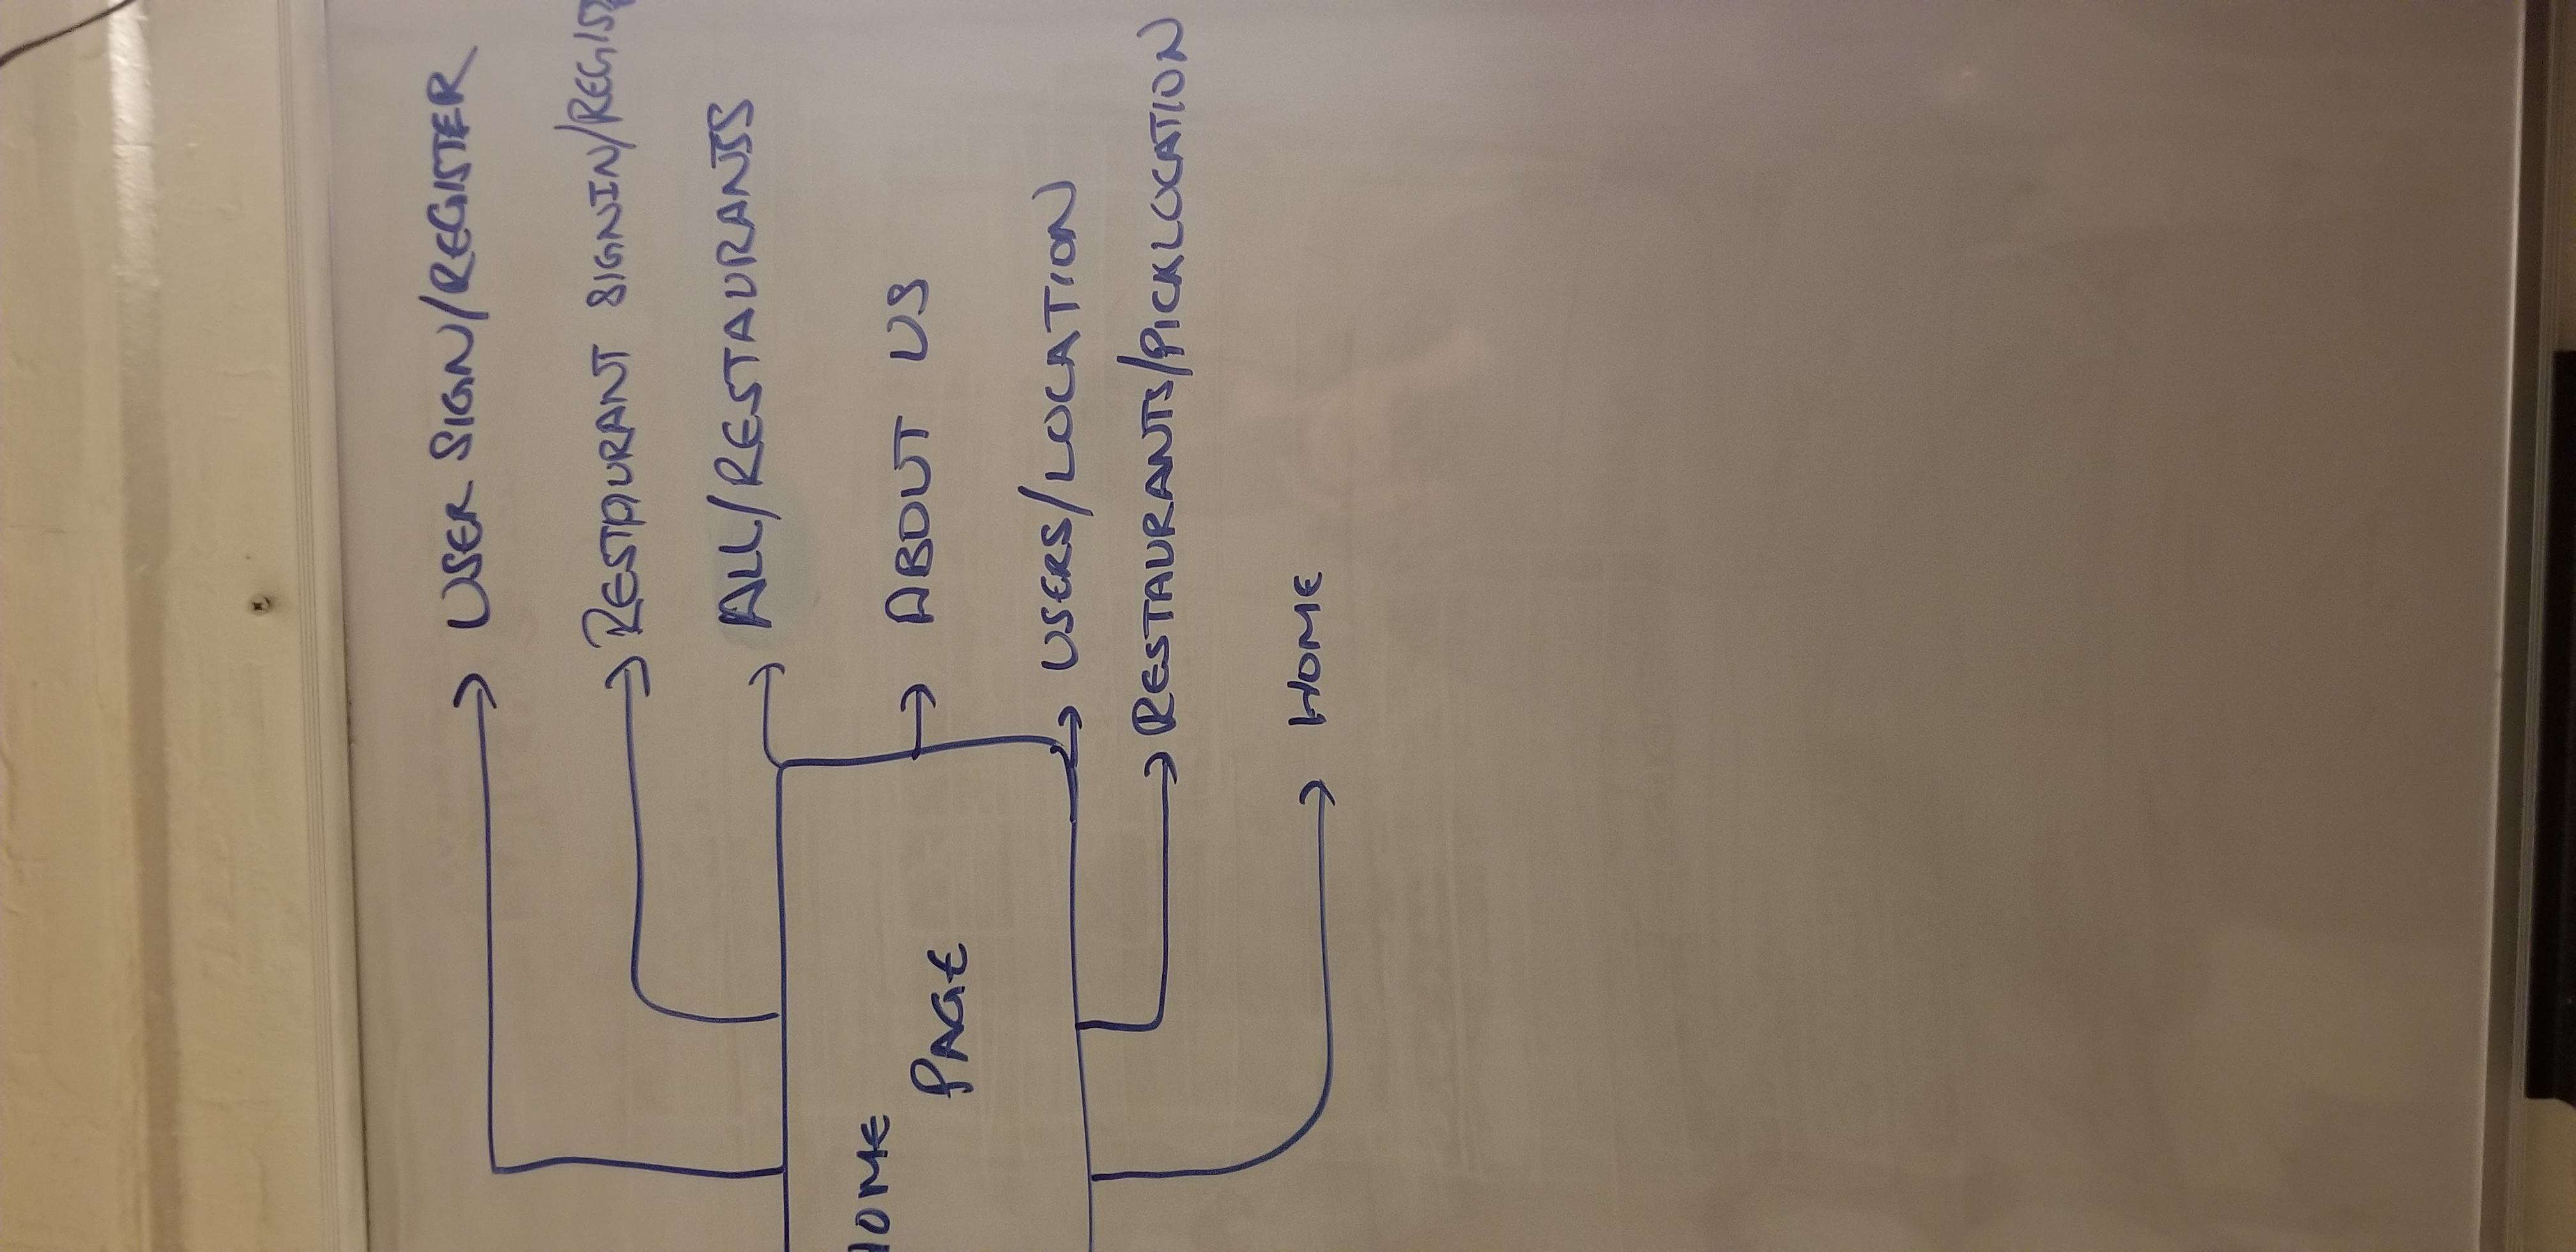 USER SIGN/REGISTER
RESTAURANT SIGNIN/REGIST
ALL/RESTAURANTS
HOME
PAGE
ABOUT US
USERS/LOCATION
RESTAURANTS/PICKLOCATION
HOME